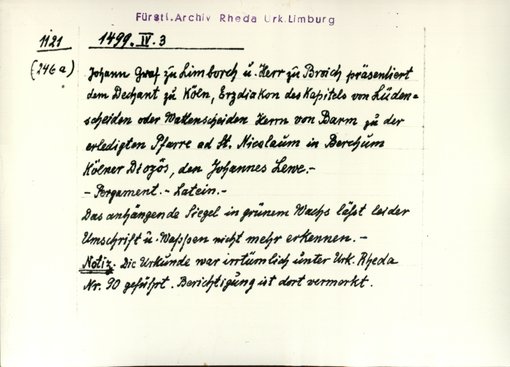 Fürstl. Archiv Rheda Urk. Limburg
1121
1499. IV. 3
(246a)
Johann Graf zu Limborch u. Herr zu Broich präsentiert
dem Dechant zu Köln, Erzdiakon des Kapitels von Lüden=
scheiden oder Wattenscheiden Herrn von Barm zu der
erledigten Pfarre ad St. Nicolaum in Berchum
Kölner Diozös, den Johannes Lewe.-
- Pergament. - Latein. -
Das anhängende Siegel in grünem Wachs läßt leider
Umschrift u. Wappen nicht mehr erkennen. -
Notiz. Die Urkunde war irrtümlich unter Urk. Rheda
Nr. 90 geführt. Berichtigung ist dort vermerkt.